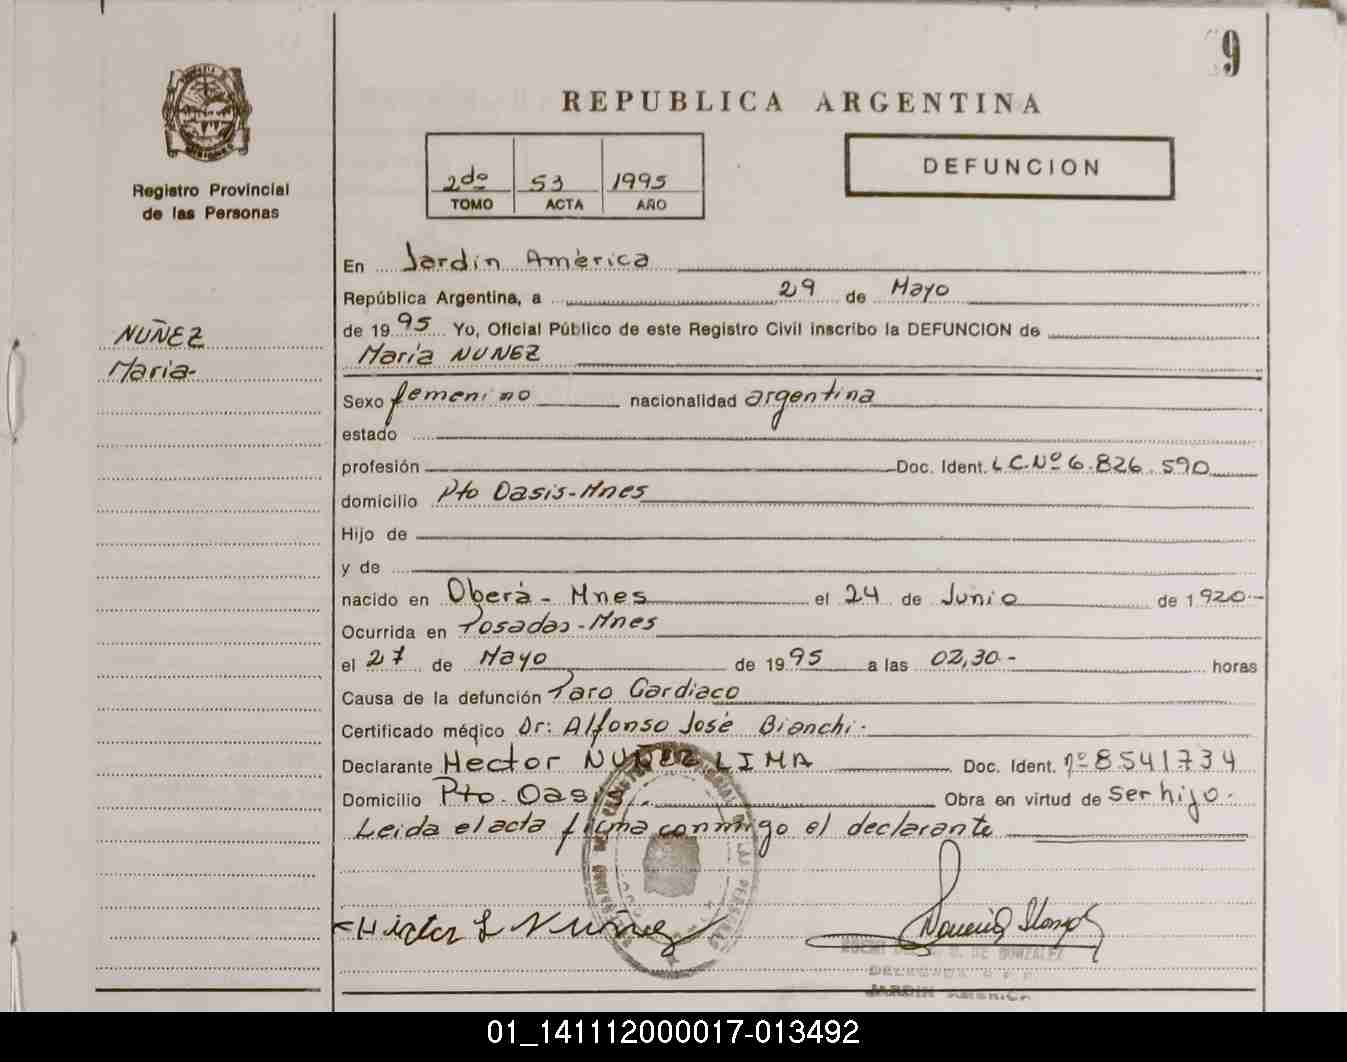 9
REPUBLICA ARGENTINA
DEFUNCION
2do 53 1995
TOMO ACTA AÑO
Registro Provincial
de las Personas
NUÑEZ
Maria-
En Jardin América
República Argentina, a 29 de Mayo
de 1995 Yo, Oficial Público de este Registro Civil inscribo la DEFUNCION de
Maria NUNEZ
Sexo femenino nacionalidad argentina
estado
profesión Doc. Ident. L.C.Nº 6.826.590
domicilio Pto Oasis-Mnes
Hijo de
y de
nacido en Oberá - Mnes el 24 de Junio de 1920-
Ocurrida en Posadas-Mnes
el 27 de Mayo de 1995 a las 02,30- horas
Causa de la defunción Paro Cardiaco
Certificado médico Dr: Alfonso José Bianchi.
Declarante Hector NUÑEZ LIMA Doc. Ident. nº 8541734
Domicilio Pto. Oasis. Obra en virtud de ser hijo.
Leida el acta firma conmigo el declarante
Hector L Nuñez
DE GONZALEZ
DELEGADA R.P.P.
JARDIN AMERICA
01_141112000017-013492